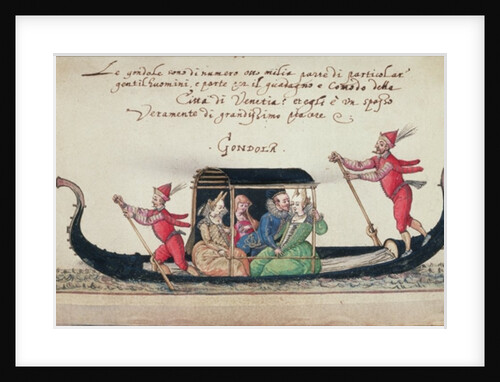 Le gondole sono di numero otto milia parte di particolar
gentilhuomini, e parte per il guadagno e Comodo della
Citta di Venetia: et egli è un spasso
Veramente di grandissimo piacere
GONDOLA.